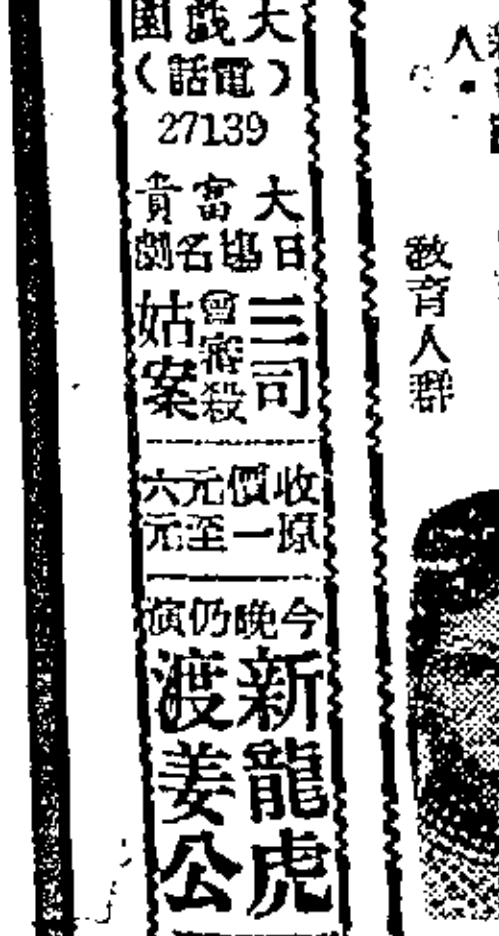 大戲園
(電話)
27139
大富貴
日塲名劇
三司
會審殺
姑案
收原
價一
元至
六元
今晚仍演
新龍虎
渡姜公
教育人群
人